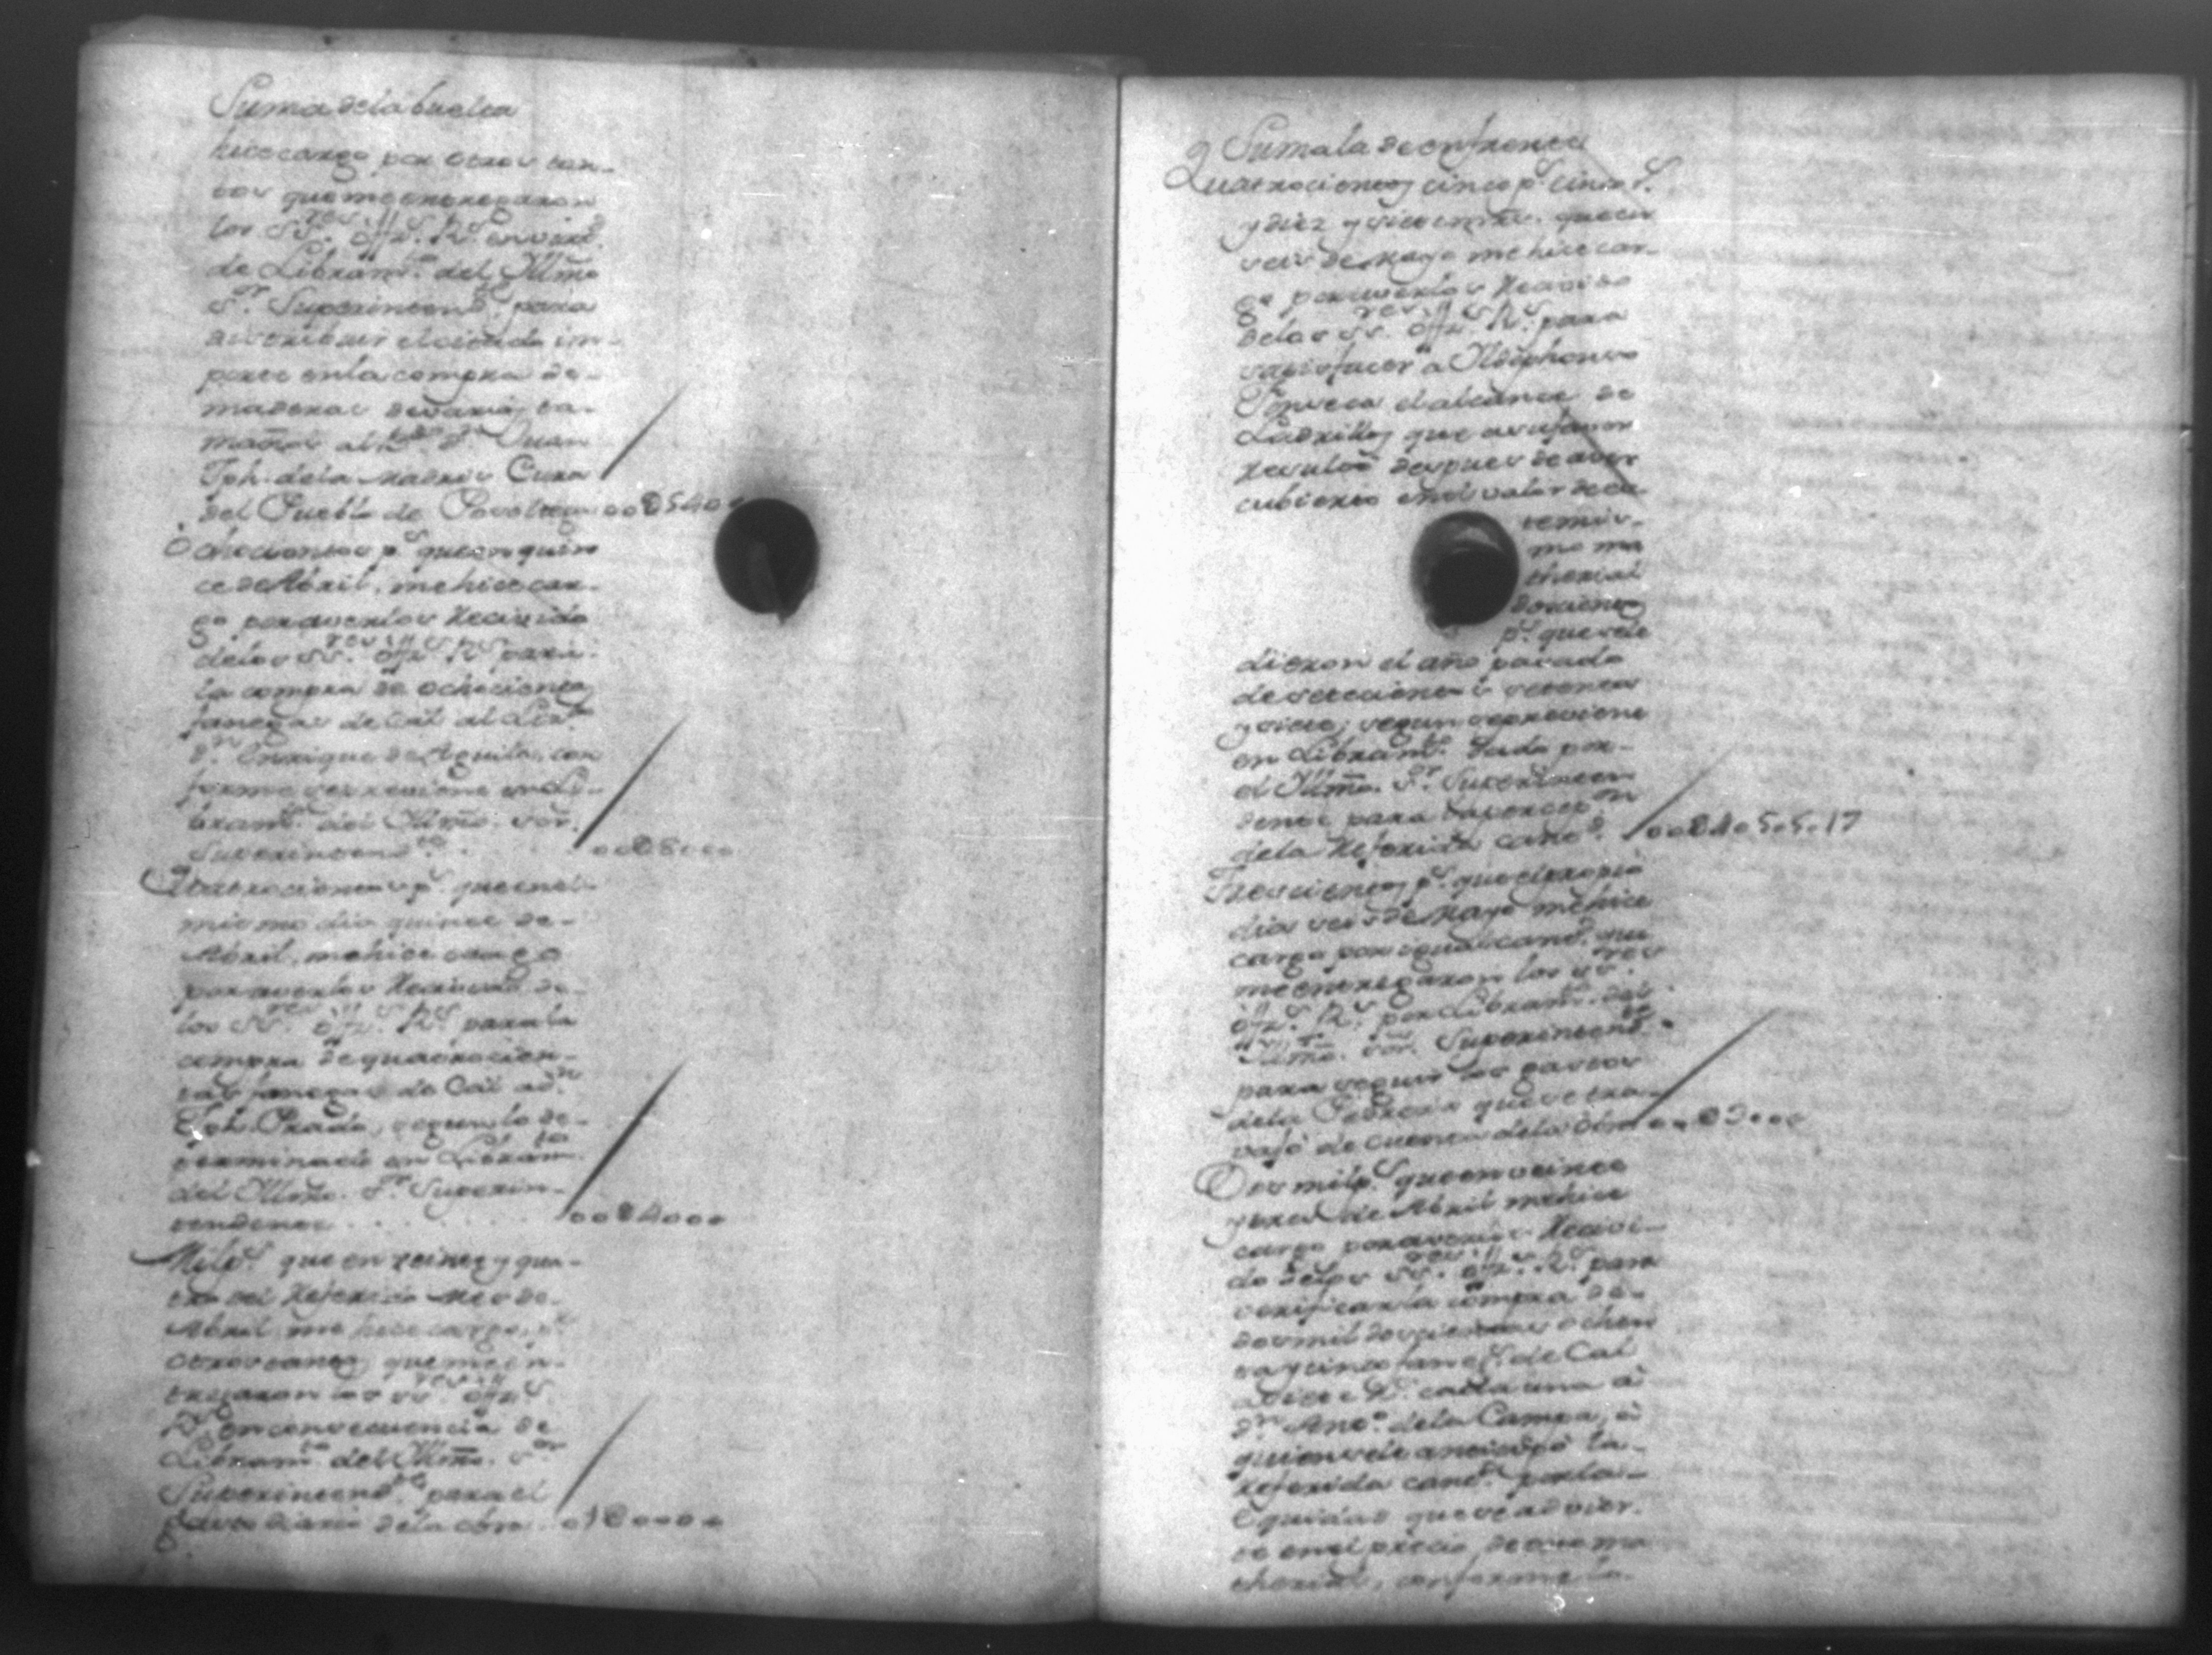 Suma dela buelta
hice cargo por otros tan-
tos que me entregaron
los SS.res Off.s R.s en virt.d
de Libram.to del Yllmõ
S.or Superintend.te para
distribuir el citado im-
porte en la compra de-
maderas de varios ta-
maños al D.n Juan
Jph. dela Madriz Cura
del Pueblo de Posoltega oo@540o
Ochocientos p.s que en quin
ce de Abril, me hice car-
go por averlos Recivido
delos SS.res Off.s R.s para
la compra de ochocientas
fanegas de Cal al
D.n Enrrique de Aguila, con
forme se previene en Li-
bram.to del Yllmõ. S.or
Superintend.te oo@8ooo
Quatrocientos p.s que en el
mismo dia quince de-
Abril, me hice cargo
por averlos Recivido de-
los SS.res Off.s R.s para la
compra de quatrocien-
tas fanegas de Cal a D.n
Jph. Prado, segun lo de-
terminado en Libram.to
del Yllmõ. S.or Superin-
tendente . . . . . . oo@4ooo
Mil p.s que en veinte y qua-
tro del Referido Mes de-
Abril me hice cargo, p.r
otros tantos que me en-
tregaron los SS.res Off.s
R.s en consecuencia de
Libram.to del Yllmõ. S.or
Superintend.te para el
gasto diario dela obra . o1@oooo
Suma la de enfrente
Quatrocientos cinco p.s cinco r.s
y diez y siete mrs. que en
seis de Mayo me hice car-
go por averlos Recivido
delos SS.res Off.s R.s para
satisfacer a Yldephonso
Fonseca el alcance de
Ladrillos que a su favor
Resultó despues de aver
cubierto en el valor de es-
te mis-
mo ma
therial
doscientos
p.s que se le
dieron el año pasado
de setecientos setenta
y siete, segun se previene
en Libram.to dado por-
el Yllmõ. S.or Superinten
dente para la percep.on
dela Referida cant.d oo@4o5.5.17
Trescientos p.s que el propio
dia seis de Mayo me hice
cargo por igual cant.d que
me entregaron los SS.res
Off.s R.s por Libram.to del
Yllmõ. S.or Superintend.te
para seguir los gastos
dela Pedrera que se tra-
vajó de cuenta dela obra oo@3ooo
Dos mil p.s que en veinte
y tres de Abril me hice
cargo por averlos Recivi-
do delos SS.res Off.s R.s para
verificar la compra de-
dos mil doscientas ochen
ta y cinco faneg.s de Cal
a siete R.s cada una a
D.n Ant.o dela Campa, a
quien se le anticipó la-
Referida cant.d por la-
equidad que se advier-
te en el precio de este ma
therial, conforme la